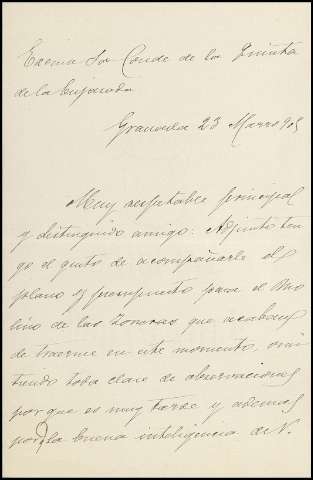 Excmo Sr Conde de la Quinta
de la Enjarada
Granada 23 Marzo 905
Muy respetable principal
y distinguido amigo: Adjunto ten
go el gusto de acompañarle el
plano y presupuesto para el Mo
lino de las Toreras que acaban
de traerme en este momento, omi
tiendo toda clase de observaciones
porque es muy tarde y ademas
por la buena inteligencia de V.